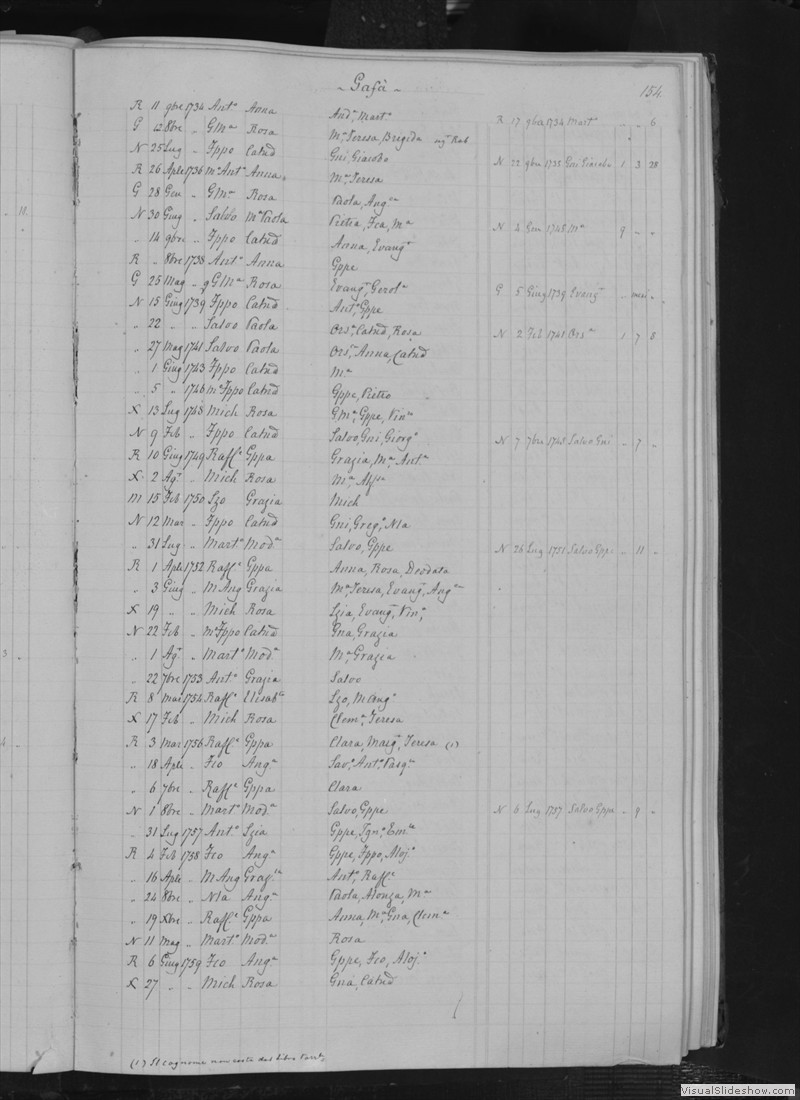 - Gafà -
154
R 11 9bre 1734 Antº Anna Andª, Martª R 17 9bre 1734 Martª - - 6
G 8bre „ GMª Rosa Mª Teresa, Brigida
N 25 Lug „ Fppo Catnd Gni, Giacobo N 22 9bre 1735 Gni Giacobo 1 3 28
R 26 Aple 1736 mº Antº Anna Mª, Teresa
G 28 Gen „ GMª Rosa Paola, Angca
N 30 Giug „ Salvo Mª Paola Pietra, Fca, Mª N 4 Gen 1745 Mª 9 - -
„ 14 9bre „ Fppo Catnd Anna, Evangª
R „ 8bre 1738 Antº Anna Gppe
G 25 Mag „ GMª Rosa Evangª, Gerolª G 5 Giug 1739 Evangª
N 15 Giug 1739 Fppo Catnd Antº, Gppe
„ 22 „ „ Salvo Paola Orsª, Catnd, Rosa N 2 Feb 1741 Orsª 1 7 8
„ 27 Mag 1741 Salvo Paola Orsª, Anna, Catnd
„ 1 Giug 1743 Fppo Catnd Mª
„ 5 „ 1746 mº Fppo Catnd Gppe, Pietro
X 13 Lug 1748 Mich Rosa GMª, Gppe, Vinº
N 9 Feb „ Fppo Catnd Salvo, Gni, Giorgº N 7 7bre 1748 Salvo Gni - 7 -
R 10 Giug 1749 Raffe Gppa Grazia, Mª, Antª
X 2 Agº „ Mich Rosa Mª,
m 15 Feb 1750 Lzo Grazia Mich
N 12 Mar „ Fppo Catnd Gni, Gregº, Nla
„ 31 Lug „ Martº Modª Salvo, Gppe N 26 Lug 1751 Salvo Gppe „ 11 „
R 1 Aple 1752 Raffe Gppa Anna, Rosa, Deodata
„ 3 Giug „ M Ang Grazia Mª, Teresa, Evangª, Angca
X 19 „ „ Mich Rosa Lzia, Evangª, Vinª
N 22 Feb „ mº Fppo Catnd Gna, Grazia
„ 1 Agº „ Martº Modª Mª, Grazia
„ 22 7bre 1753 Antº Grazia Salvo
R 8 Mar 1754 Raffe Elisabta Lzo, M Angº
X 17 Feb „ Mich Rosa Clemª, Teresa
R 3 Mar 1756 Raffe Gppa Clara, Margª, Teresa (1)
„ 18 Aple „ Fco Angª Savº, Antº, Pasqº
„ 6 7bre „ Raffe Gppa Clara
N 1 8bre „ Martº Modª Salvo, Gppe N 6 Lug 1757 Salvo Gppe - 9 -
„ 31 Lug 1757 Antº Lzia Gppe, Ignº, Emle
R 4 Feb 1758 Fco Angª Gppe, Fppo, Alojº
„ 16 Aple „ M Ang Grazia Antº, Raffe
„ 24 8bre „ Nla Angª Paola, Alonza, Mª
„ 19 Xbre „ Raffe Gppa Anna, Mª, Gna, Clemª
N 11 Mag „ Martº Modª Rosa
R 6 Giug 1759 Fco Angª Gppe, Fco, Alojº
X 27 „ „ Mich Rosa Gna, Catnd
(1) Il cognome non costa dal libro
VisualSlideshow.com